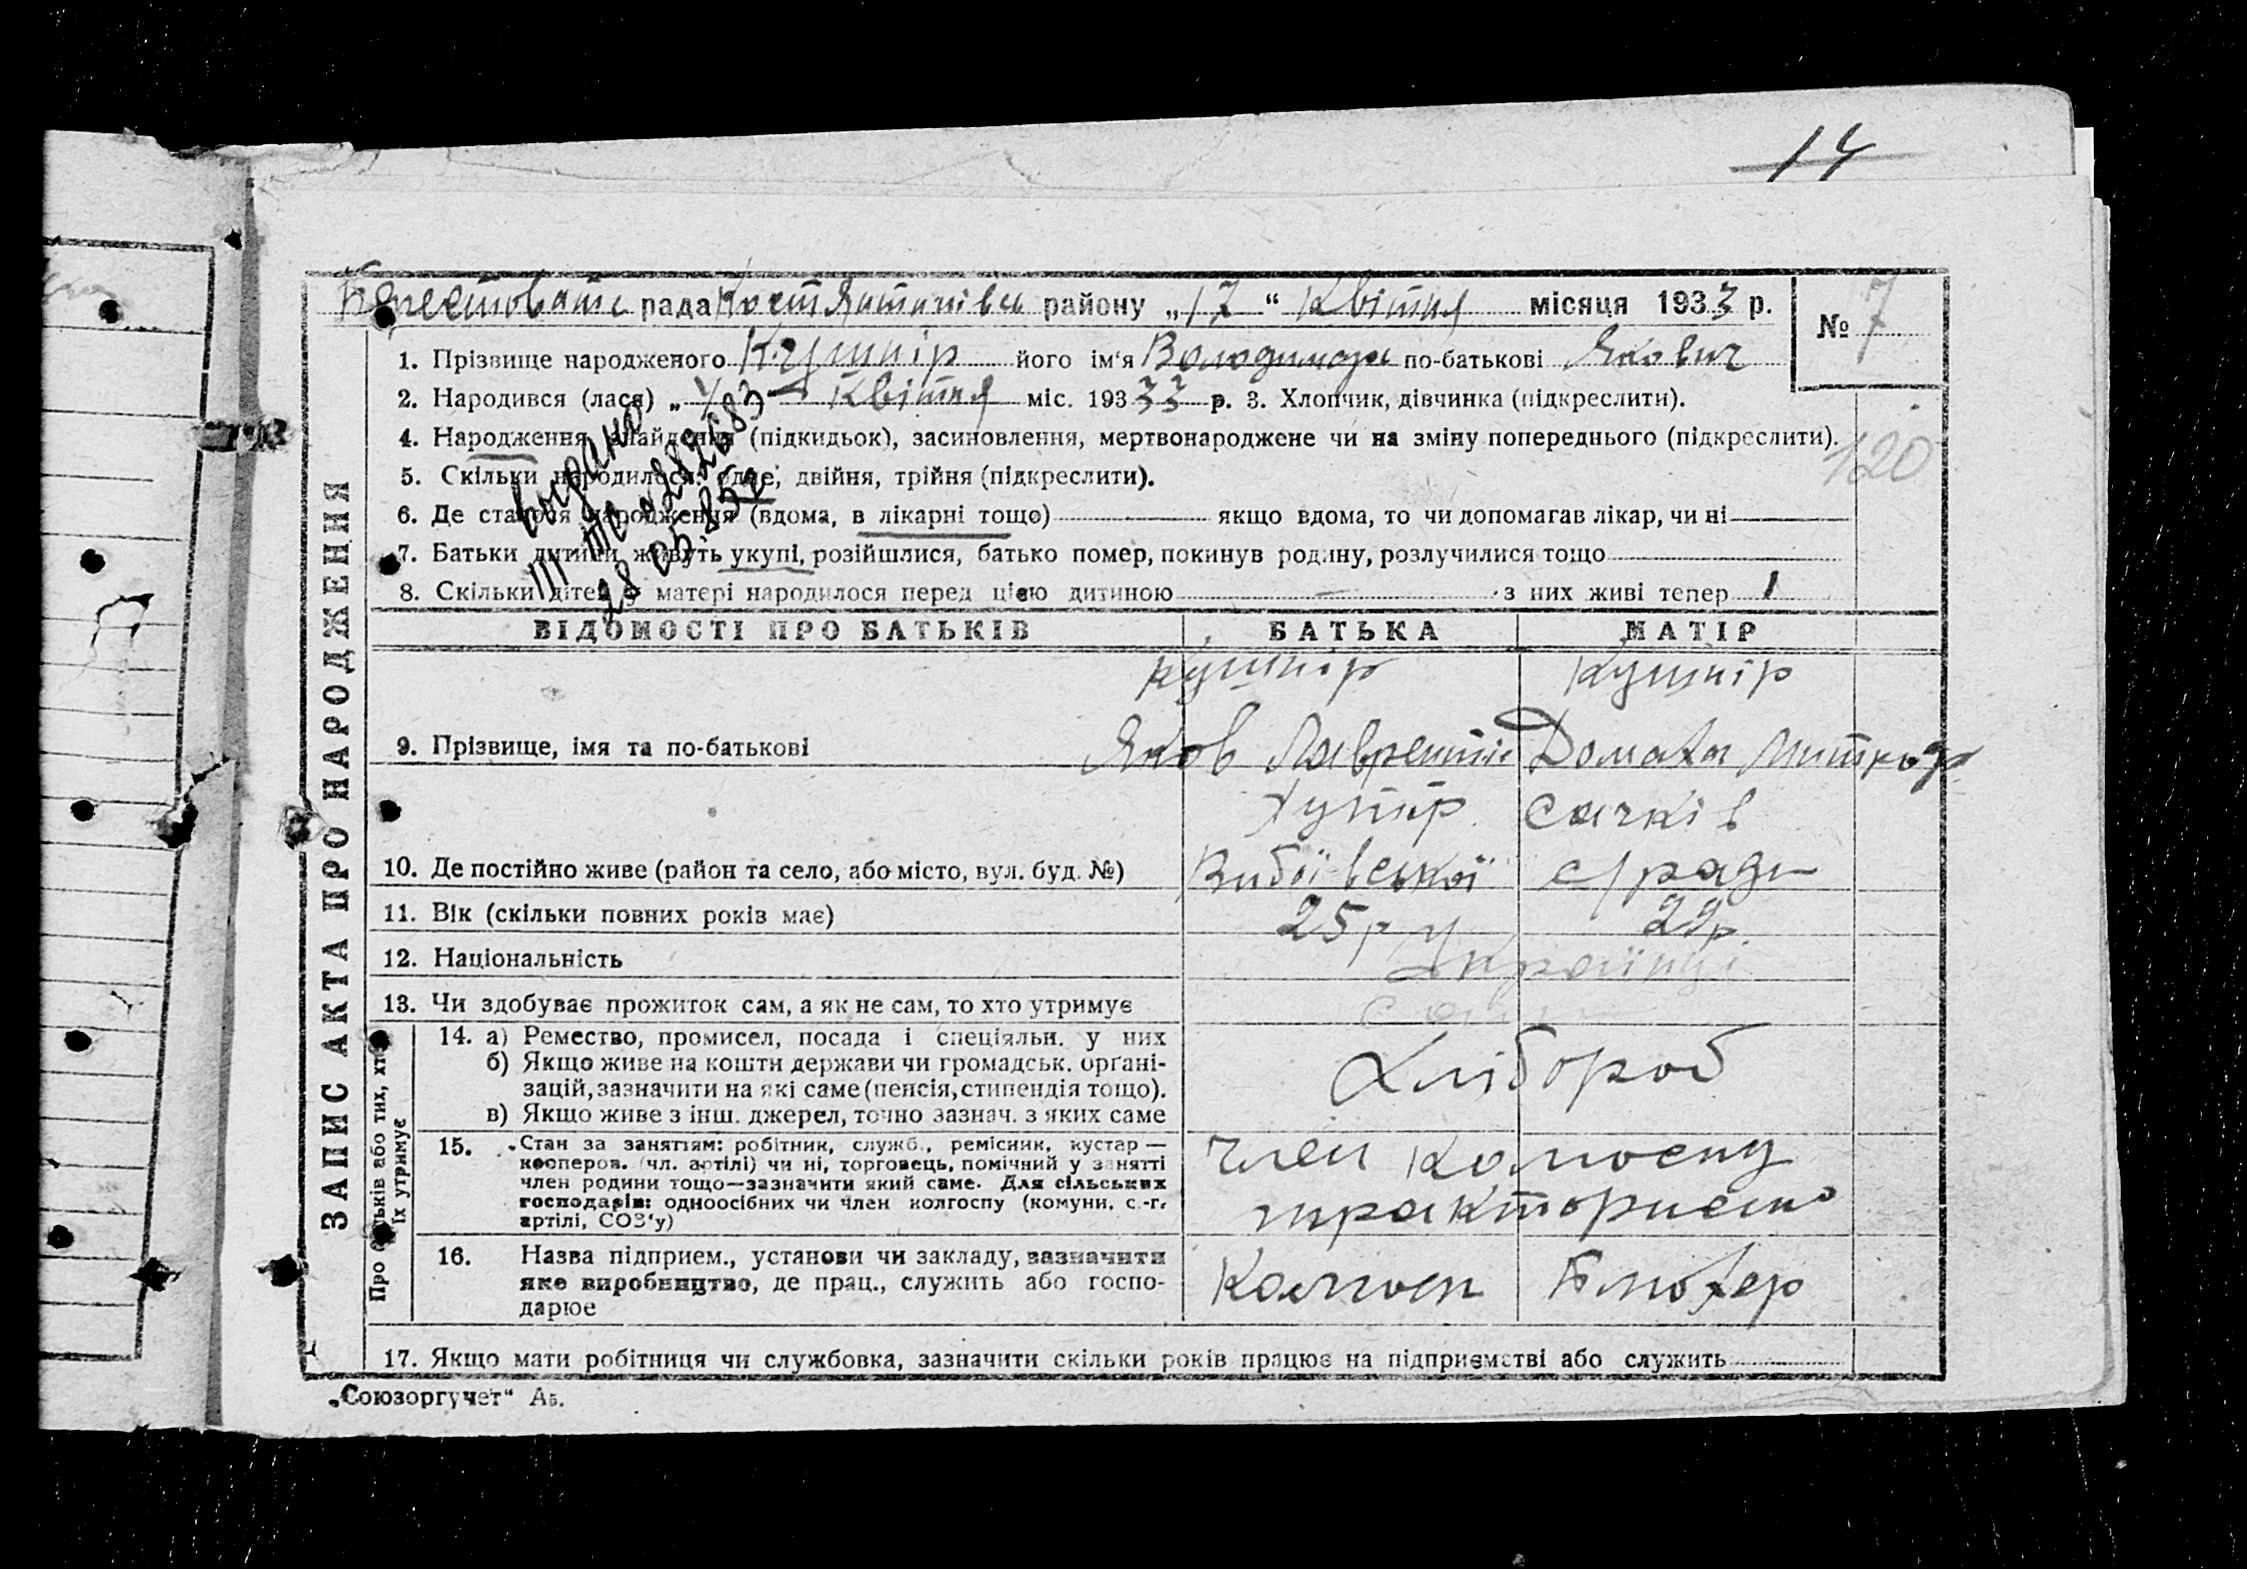 14
рада Костянтинівсь району „17“ Квітня місяця 1933 р.
№ 7
1. Прізвище народженого Кушнір його ім‘я Володимир по-батькові Якович
2. Народився (лася) „ Квітня міс. 1933 р. 3. Хлопчик, дівчинка (підкреслити).
4. Народження, знайдення (підкидьок), засиновлення, мертвонароджене чи на зміну попереднього (підкреслити).
120
5. Скільки народилося: одне, двійня, трійня (підкреслити).
6. Де сталося народження (вдома, в лікарні тощо) якщо вдома, то чи допомагав лікар, чи ні
7. Батьки дитини живуть укупі, розійшлися, батько помер, покинув родину, розлучилися тощо
8. Скільки дітей у матері народилося перед цією дитиною — з них живі тепер 1
видано
28 05 85г
ЗАПИС АКТА ПРО НАРОДЖЕННЯ
ВІДОМОСТІ ПРО БАТЬКІВ БАТЬКА МАТІР
Кушнір Кушнір
9. Прізвище, імя та по-батькові Яков Лаврентів Домаха
Хутір Сачків
10. Де постійно живе (район та село, або місто, вул. буд. №) с/ради
11. Вік (скільки повних років має) 25р 22р.
12. Національність Українці
13. Чи здобуває прожиток сам, а як не сам, то хто утримує сами
Про батьків або тих, хто
їх утримує
14. а) Ремество, промисел, посада і спеціяльн. у них
б) Якщо живе на кошти держави чи громадськ. орґані-
зацій, зазначити на які саме (пенсія, стипендія тощо).
в) Якщо живе з інш. джерел, точно зазнач. з яких саме
Хлібороб
15. Стан за заняттям: робітник, служб., ремісник, кустар —
кооперов. (чл. артілі) чи ні, торговець, помічний у занятті
член родини тощо—зазначити який саме. Для сільських
господарів: одноосібних чи член колгоспу (комуни, с.-г.
артілі, СОЗ‘у)
член колгоспу
тракторист
16. Назва підприєм., установи чи закладу, зазначити
яке виробництво, де прац., служить або госпо-
дарює
Колгосп Блюхер
17. Якщо мати робітниця чи службовка, зазначити скільки років працює на підприємстві або служить
„Союзоргучет“ Аб.